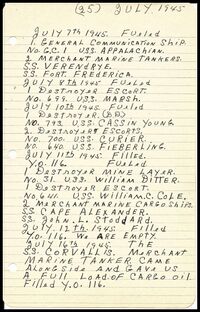 (25) JULY 1945
JULY 7th 1945. FUELED
1 GENERAL COMMUNICATION SHIP.
NO. G.C.1 U.S.S. APPALACHIAN.
2 MERCHANT MARINE TANKERS.
S.S. VERENDRYE.
S.S. FORT. FREDERICA.
JULY 8th 1945. FUELED
1 DESTROYER ESCORT.
NO. 699. U.S.S. MARSH.
JULY 10th 1945. FUELED
1 DESTROYER. (DD)
NO. 793. U.S.S. CASSIN YOUNG
2 DESTROYERS ESCORTS.
NO. 700. U.S.S. CURIER.
NO. 640. U.S.S. FIEBERLING.
JULY 11th 1945. FILLED.
Y.O. 116. FUELED
1 DESTROYER MINE LAYER.
NO. 31. U.S.S. WILLIAM DITTER.
1 DESTROYER ESCORT.
NO. 641. U.S.S. WILLIAM. C. COLE.
2 MERCHANT MARINE CARGO SHIPS.
S.S. CAPE ALEXANDER.
S.S. JOHN. L. STODDARD.
JULY 12th 1945. FILLED
Y.O. 116. WE ARE EMPTY
JULY 16th 1945. THE
S.S. CORVALLIS. MERCHANT
MARINE TANKER CAME
ALONGSIDE AND GAVE US
A FULL LOAD OF CARGO OIL
FILLED Y.O. 116.